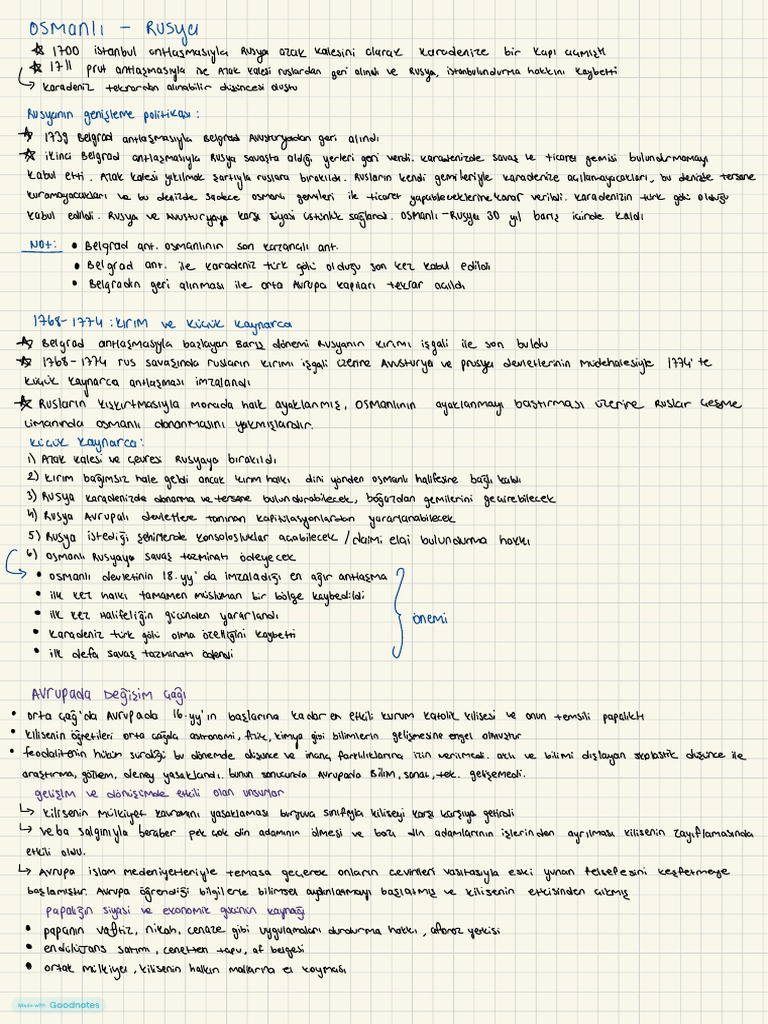 OSMANLI - RUSYA
☆ 1700 istanbul antlaşmasıyla Rusya azak kalesini alarak karadenize bir kapı açmıştı
☆ 1711 prut antlaşmasıyla ise Azak kalesi ruslardan geri alındı ve Rusya, istanbulundurma hakkını kaybetti
↳ karadeniz tekrardan alınabilir düşüncesi oluştu
Rusyanın genişleme politikası:
☆ 1739 Belgrad antlaşmasıyla Belgrad Avusturyadan geri alındı
☆ ikinci Belgrad antlaşmasıyla Rusya savaşta aldığı yerleri geri verdi. karadenizde savaş ve ticaret gemisi bulundurmamayı
kabul etti. Azak kalesi yıkılmak şartıyla ruslara bırakıldı. Rusların kendi gemileriyle karadenize açılamayacakları, bu denizde tersane
kuramayacakları ve bu denizde sadece osmanlı gemileri ile ticaret yapabileceklerine karar verildi. karadenizin türk gölü olduğu
kabul edildi. Rusya ve Avusturyaya karşı siyasi üstünlük sağlandı. OSMANLI-RUSYA 30 yıl barış içinde kaldı
NOT: • Belgrad ant. osmanlının son kazançlı ant.
• Belgrad ant. ile karadeniz türk gölü olduğu son kez kabul edildi
• Belgradın geri alınması ile orta Avrupa kapıları tekrar açıldı
1768-1774: kırım ve küçük kaynarca
☆ Belgrad antlaşmasıyla başlayan Barış dönemi Rusyanın kırımı işgali ile son buldu
☆ 1768-1774 rus savaşında rusların kırımı işgali üzerine Avusturya ve prusya devletlerinin müdehalesiyle 1774'te
küçük kaynarca antlaşması imzalandı
☆ Rusların kışkırtmasıyla morada halk ayaklanmış, OSMANLININ ayaklanmayı bastırması üzerine Ruslar çeşme
limanında osmanlı donanmasını yakmışlardır.
küçük kaynarca:
1) Azak kalesi ve çevresi Rusyaya bırakıldı
2) kırım bağımsız hale geldi ancak kırım halkı dini yönden osmanlı halifesine bağlı kaldı
3) Rusya karadenizde donanma ve tersane bulundurabilecek, boğazdan gemilerini geçirebilecek
4) Rusya Avrupalı devletlere tanınan kapitülasyonlardan yararlanabilecek
5) Rusya istediği şehirlerde konsolosluklar açabilecek / daimi elçi bulundurma hakkı
6) osmanlı Rusyaya savaş tazminatı ödeyecek
• osmanlı devletinin 18.yy'da imzaladığı en ağır antlaşma
• ilk kez halkı tamamen müslüman bir bölge kaybedildi
• ilk kez Halifeliğin gücünden yararlandı
önemi
• karadeniz türk gölü olma özelliğini kaybetti
• ilk defa savaş tazminatı ödendi
AVRUPADA DEĞİŞİM ÇAĞI
• orta çağ'da AVRUPADA 16.yy'ın başlarına kadar en etkili kurum katolik kilisesi ve onun temsili papalıktı
• kilisenin öğretileri orta çağda astronomi, fizik, kimya gibi bilimlerin gelişmesine engel olmuştur
• feodalitenin hüküm sürdüğü bu dönemde düşünce ve inanç farklılıklarına izin verilmedi. aklı ve bilimi dışlayan skolastik düşünce ile
araştırma, gözlem, deney yasaklandı. bunun sonucunda Avrupada Bilim, sanat, tek. gelişemedi.
gelişim ve dönüşümde etkili olan unsurlar
↳ kilisenin mülkiyet kavramını yasaklaması burjuva sınıfıyla kiliseyi karşı karşıya getirdi
↳ veba salgınıyla beraber pek çok din adamının ölmesi ve bazı din adamlarının işlerinden ayrılması kilisenin zayıflamasında
etkili oldu.
↳ Avrupa islam medeniyetleriyle temasa geçerek onların çevirileri vasıtasıyla eski yunan felsefesini keşfetmeye
başlamıştır. Avrupa öğrendiği bilgilerle bilimsel aydınlanmayı başlatmış ve kilisenin etkisinden çıkmış
papalığın siyasi ve ekonomik gücünün kaynağı
• papanın vaftiz, nikah, cenaze gibi uygulamaları durdurma hakkı, aforoz yetkisi
• endüljans satımı, cennetten tapu, af belgesi
• ortak mülkiyet, kilisenin halkın mallarına el koyması
Made with Goodnotes